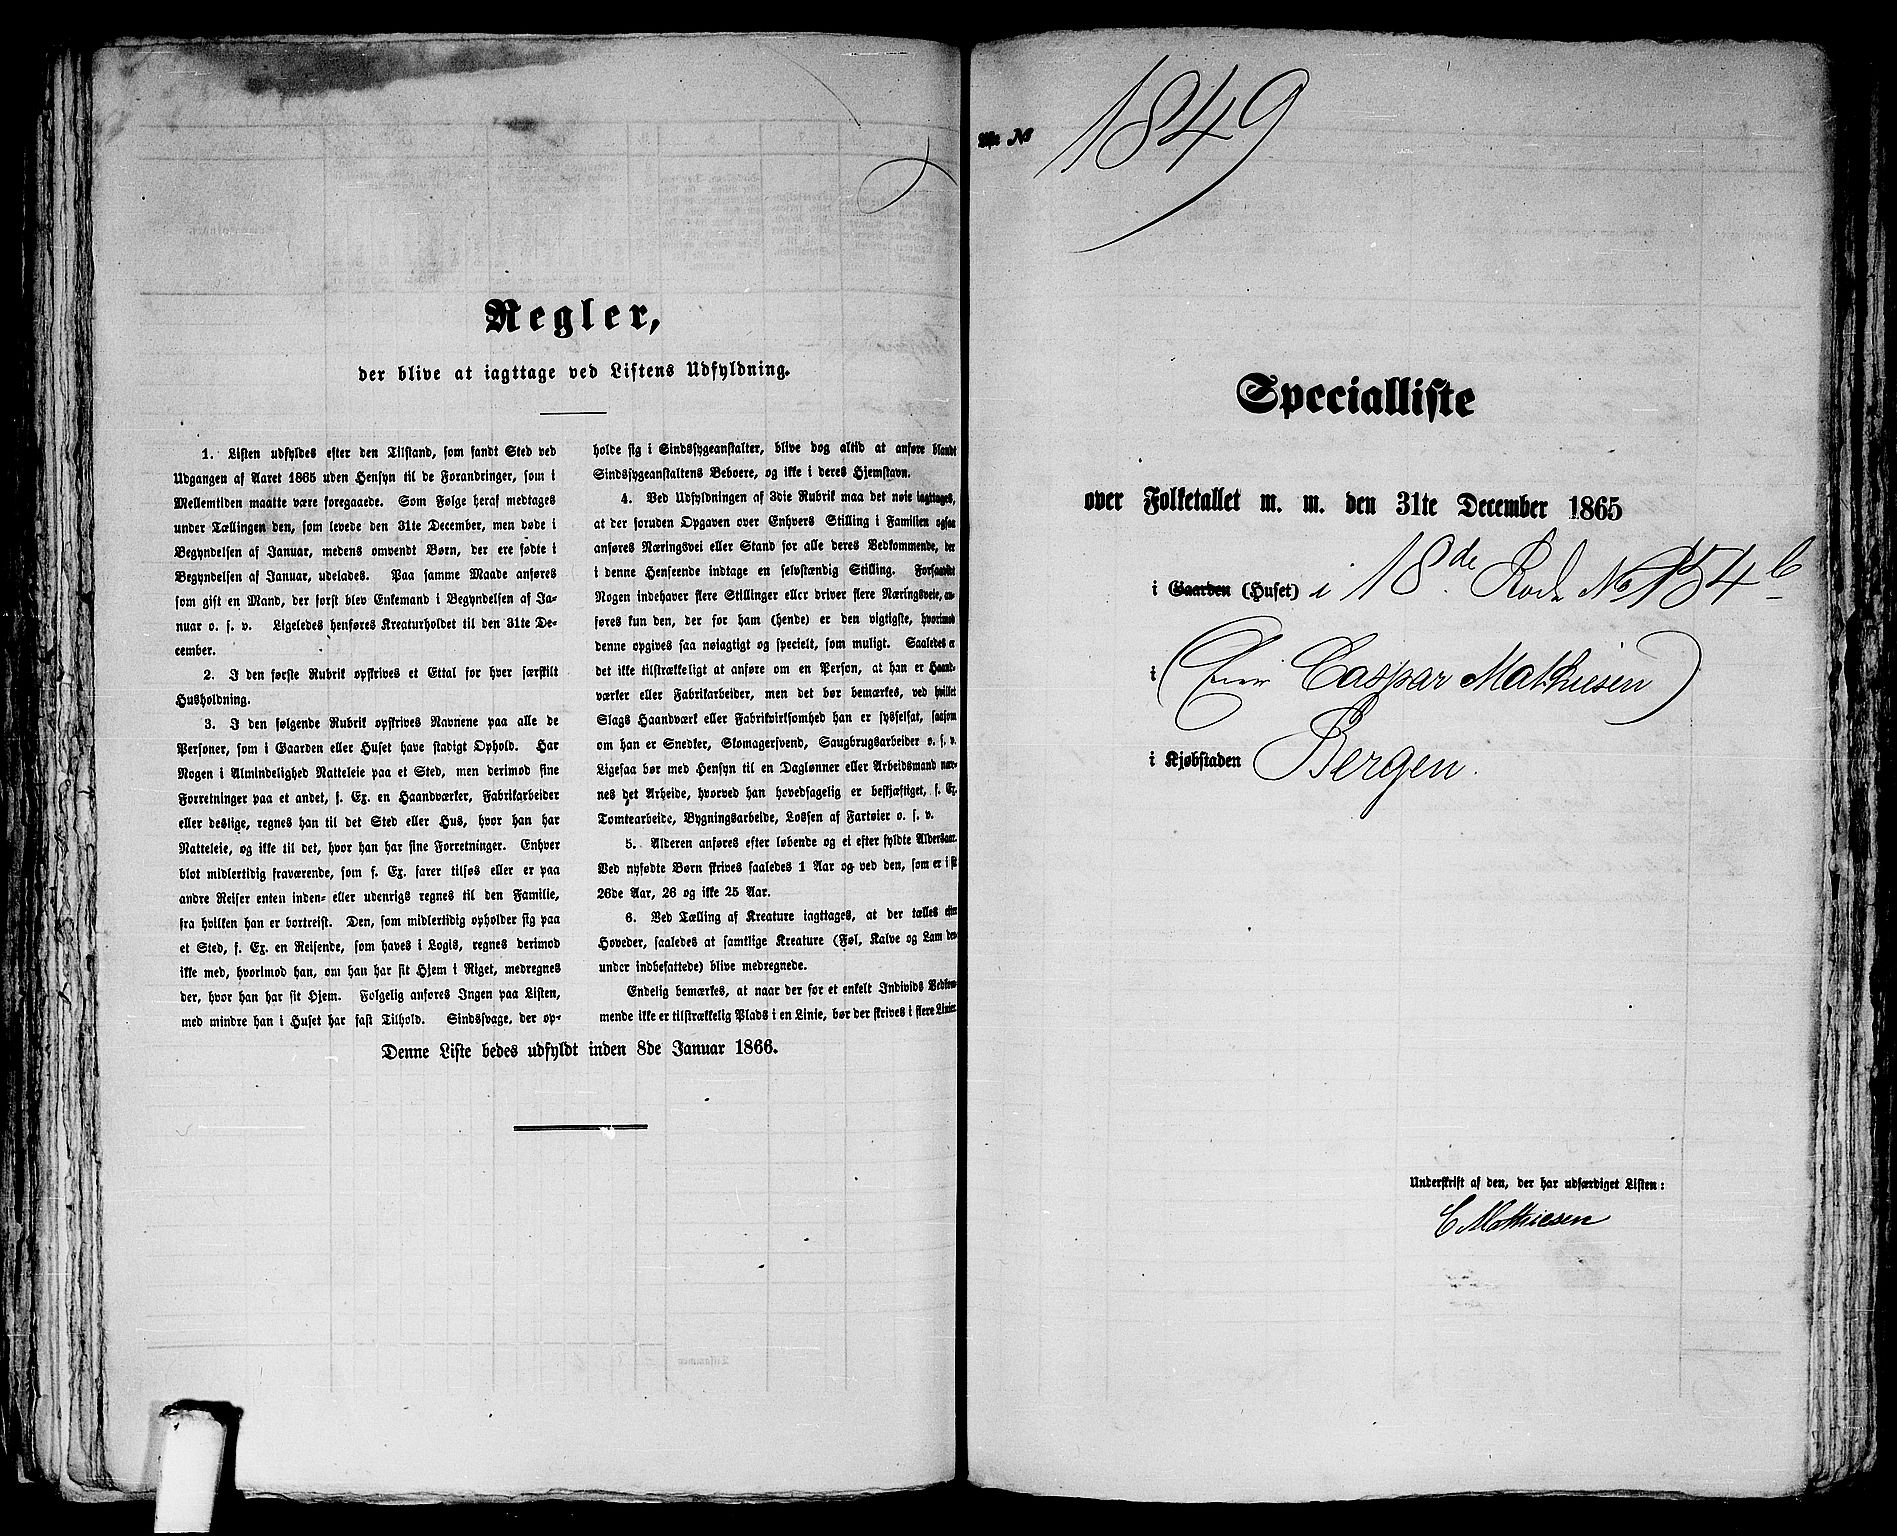 Regler,
der blive at iagttage ved Listens Udfyldning.
1. Listen udfyldes efter den Tilstand, som fandt Sted ved
Udgangen af Aaret 1865 uden Hensyn til de Forandringer, som i
Mellemtiden maatte være foregaaede. Som Følge heraf medtages
under Tællingen den, som levede den 31te December, men døde i
Begyndelsen af Januar, medens omvendt Børn, der ere fødte i
Begyndelsen af Januar, udelades. Paa samme Maade anføres
som gift en Mand, der først blev Enkemand i Begyndelsen af Ja-
nuar o. s. v. Ligeledes henføres Kreaturholdet til den 31te De-
cember.
2. I den første Rubrik opskrives et Ettal for hver særskilt
Husholdning.
3. I den følgende Rubrik opskrives Navnene paa alle de
Personer, som i Gaarden eller Huset have stadigt Ophold. Har
Nogen i Almindelighed Natteleie paa et Sted, men derimod sine
Forretninger paa et andet, f. Ex. en Haandværker, Fabrikarbeider
eller deslige, regnes han til det Sted eller Hus, hvor han har
Natteleie, og ikke til det, hvor han har sine Forretninger. Enhver
blot midlertidig fraværende, som f. Ex. farer tilsøs eller er paa
andre Reiser enten inden- eller udenrigs regnes til den Familie,
fra hvilken han er bortreist. Den, som midlertidig opholder sig paa
et Sted, f. Ex. en Reisende, som haves i Logis, regnes derimod
ikke med, hvorimod han, om han har sit Hjem i Riget, medregnes
der, hvor han har sit Hjem. Folgelig anføres Ingen paa Listen,
med mindre han i Huset har fast Tilhold. Sindssvage, der op-
holde sig i Sindssygeanstalter, blive dog altid at anføre blandt
Sindssygeanstaltens Beboere, og ikke i deres Hjemstavn.
4. Ved Udfyldningen af 3die Rubrik maa det nøie iagttages,
at der foruden Opgaven over Enhvers Stilling i Familien ogsaa
anføres Næringsvei eller Stand for alle deres Vedkommende, der
i denne Henseende indtage en selvstændig Stilling. Forsaavidt
Nogen indehaver flere Stillinger eller driver flere Næringsveie, an-
føres kun den, der for ham (hende) er den vigtigste, hvorimod
denne opgives saa nøiagtigt og specielt, som muligt. Saaledes er
det ikke tilstrækkeligt at anføre om en Person, at han er Haand-
værker eller Fabrikarbeider, men det bør bemærkes, ved hvilket
Slags Haandværk eller Fabrikvirksomhed han er sysselsat, saasom
om han er Snedker, Skomagersvend, Saugbrugsarbeider o. s. v.
Ligesaa bør med Hensyn til en Daglønner eller Arbeidsmand næv-
nes det Arbeide, hvorved han hovedsagelig er beskjæftiget, f. Ex.
Tomtearbeide, Bygningsarbeide, Lossen af Fartøier o. s. v.
5. Alderen anføres efter løbende og ei efter fyldte Aldersaar.
Ved nyfødte Børn skrives saaledes 1 Aar og ved den, som er i sit
26de Aar, 26 og ikke 25 Aar.
6. Ved Tælling af Kreature iagttages, at der tælles efter
Hoveder, saaledes at samtlige Kreature (Føl, Kalve og Lam der-
under indbefattede) blive medregnede.
Endelig bemærkes, at naar der for et enkelt Individs Vedkom-
mende ikke er tilstrækkelig Plads i en Linie, bør der skrives i flere Linier.
Denne Liste bedes udfyldt inden 8de Januar 1866.
№ 1849
Specialliste
over Folketallet m. m. den 31te December 1865
i Gaarden (Huset) i 18de Rode No 154b
i (Eier Caspar Mathiesen)
i Kjøbstaden Bergen.
Underskrift af den, der har udfærdiget Listen:
C Mathiesen